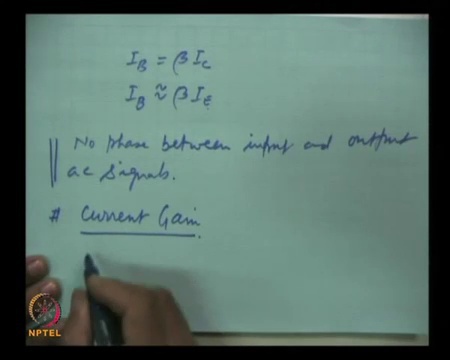 I_B = βI_C
I_B ≈ βI_E
No phase between input and output
ac signals.
# Current Gain.
NPTEL